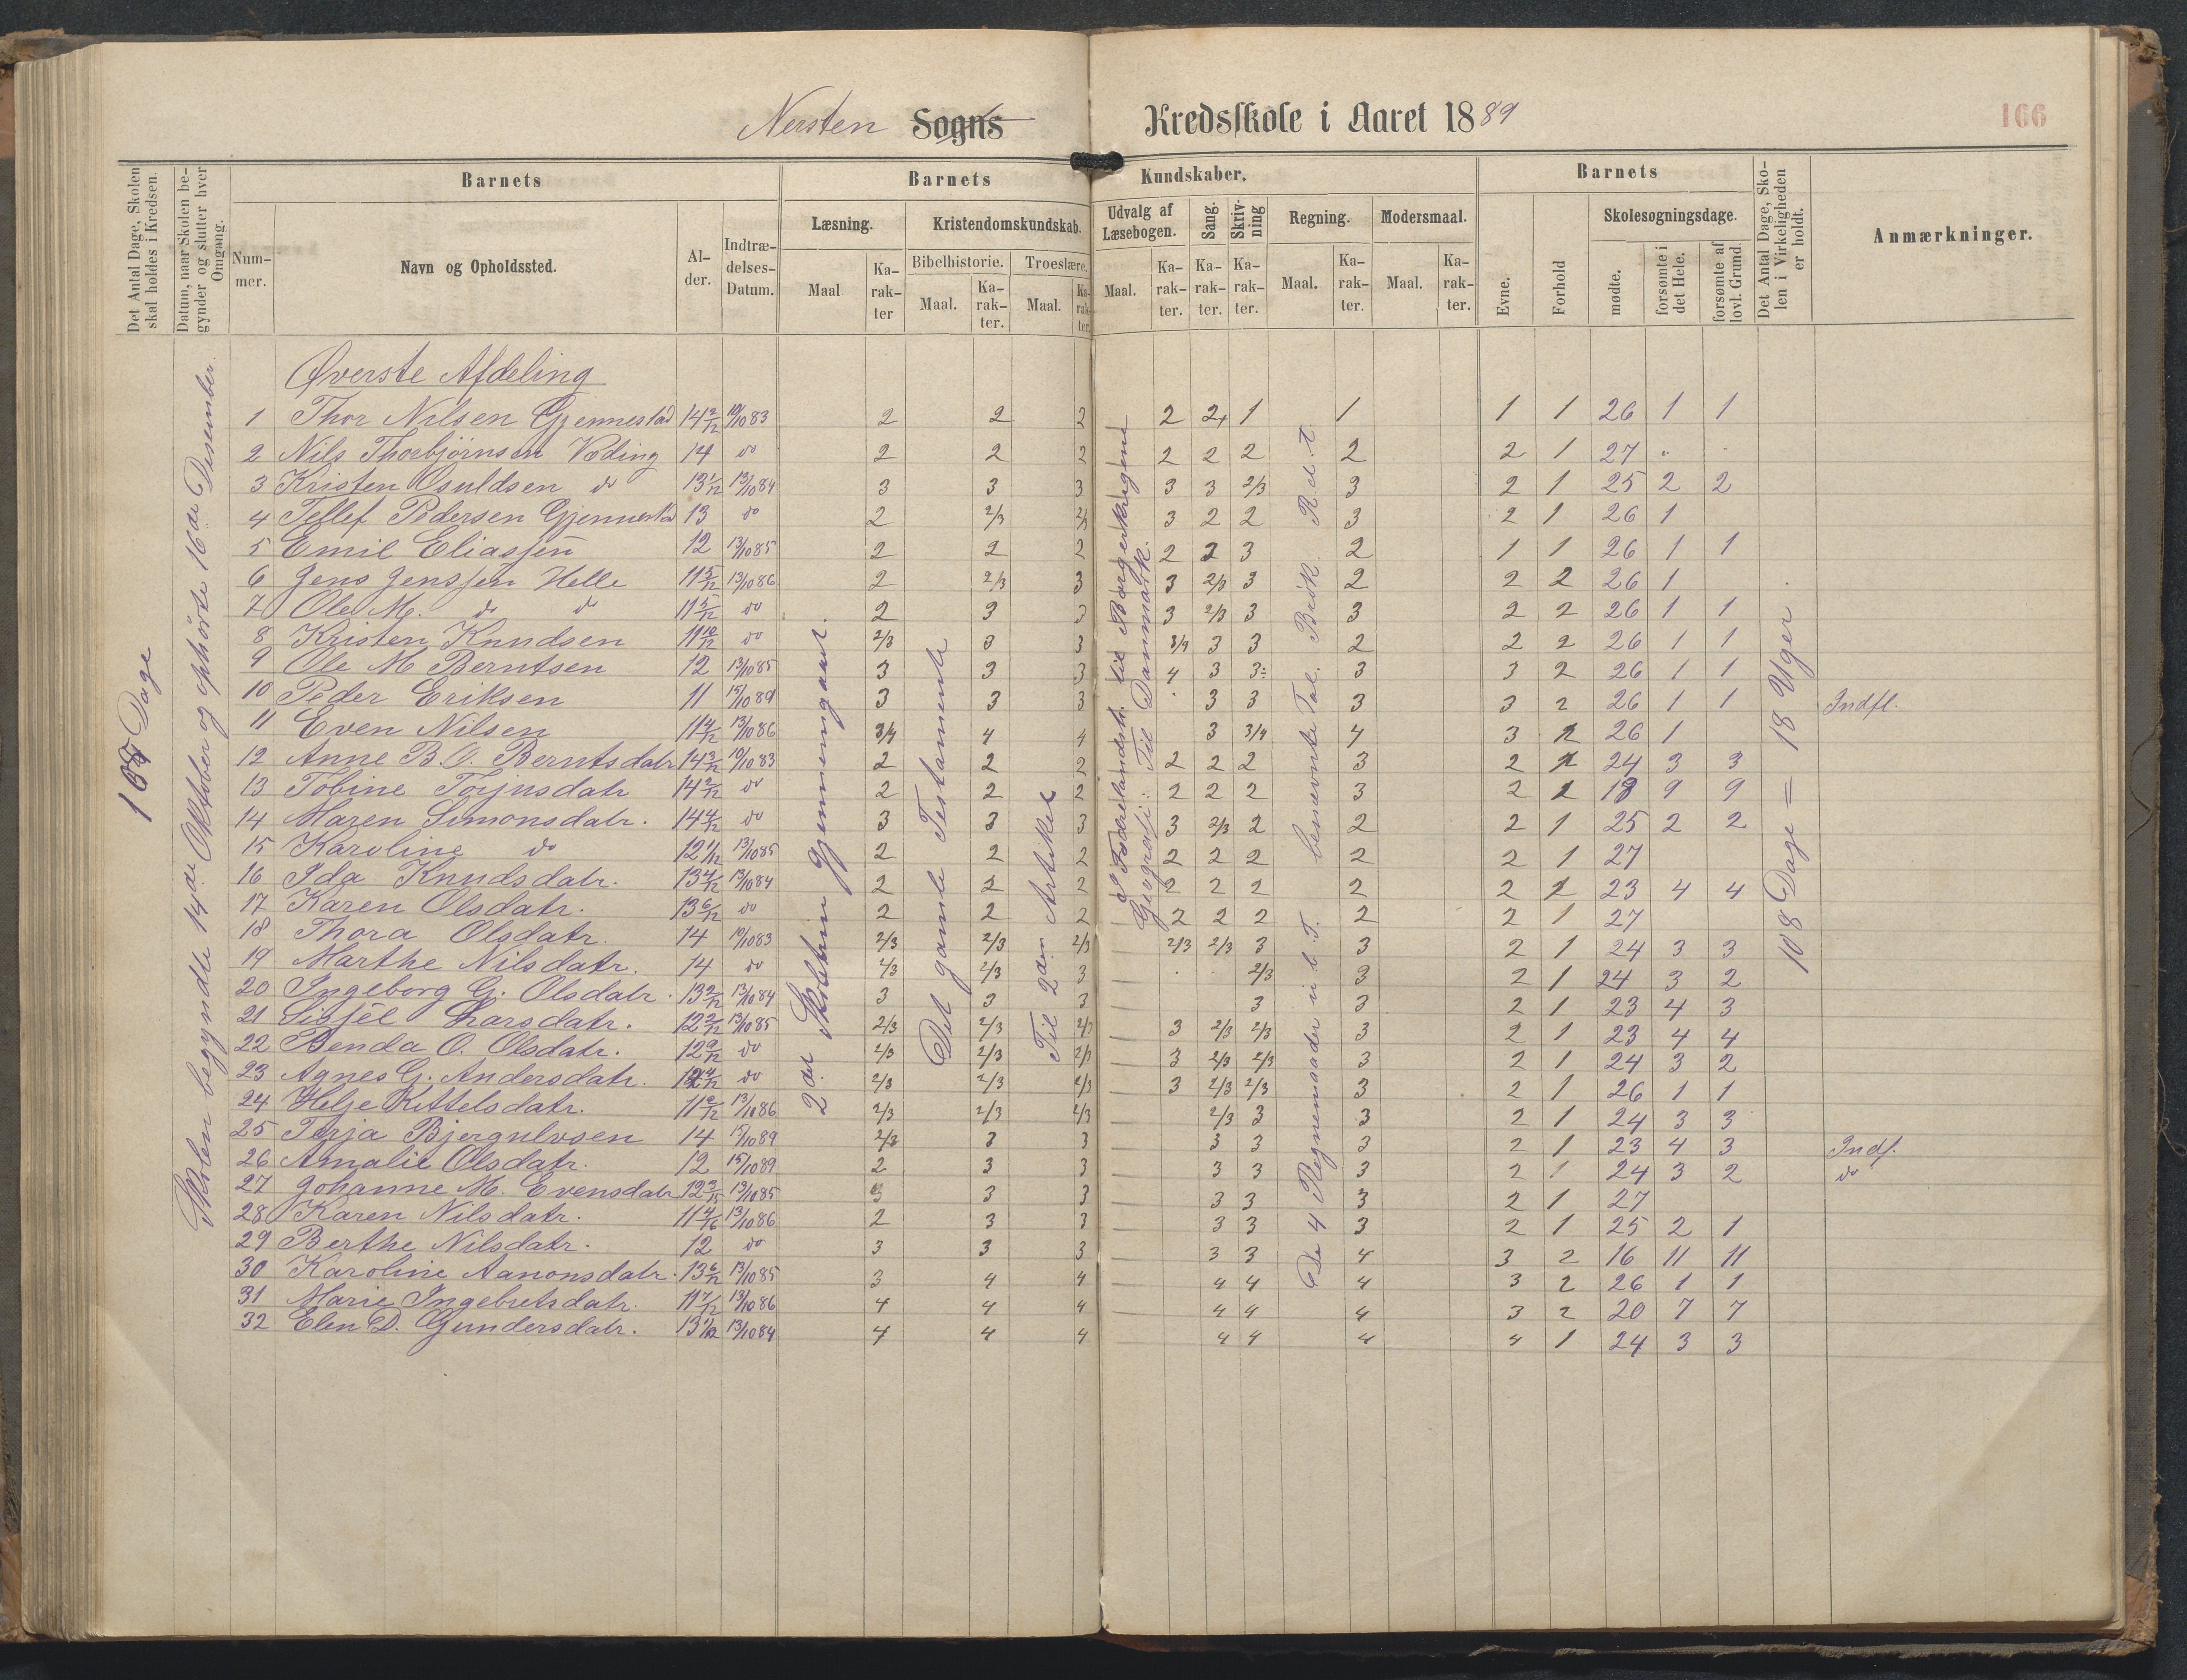 Nersten Sogns Kredsskole i Aaret 1889
166
Det Antal Dage, Skolen skal holdes i Kredsen.
Datum, naar Skolen begynder og slutter hver Omgang.
Barnets
Nummer.
Navn og Opholdssted.
Alder.
Indtrædelses-Datum.
Barnets Kundskaber.
Læsning.
Maal
Karakter
Kristendomskundskab.
Bibelhistorie.
Maal.
Karakter.
Troeslære.
Maal.
Karakter.
Udvalg af Læsebogen.
Maal.
Karakter.
Sang.
Karakter.
Skrivning
Karakter.
Regning.
Maal.
Karakter.
Modersmaal.
Maal.
Karakter.
Barnets
Evne.
Forhold
Skolesøgningsdage.
mødte.
forsømte i det Hele.
forsømte af lovl. Grund.
Det Antal Dage, Skolen i Virkeligheden er holdt.
Anmærkninger.
108 Dage
Skolen begyndte 14de Oktober og ophørte 16de Desember.
2det Skoletrin gjennemgaaet.
Det gamle Testamente
Til 2den Artikel
Geografi: Til Danmark.
De 4 Regnemaader
108 Dage = 18 Uger
Øverste Afdeling
1 Thor Nilsen Gjennestad 14 2/12 10/10 83 2 2 2 2 2+ 1 1 1 1 26 1 1
2 Nils Thorbjörnsen Voding 14 do 2 2 2 2 2 2 2 2 1 27 . .
3 Kristen Osuldsen do 13 1/12 13/10 84 3 3 3 3 3 2/3 3 2 1 25 2 2
4 Tellef Pedersen Gjennestad 13 do 2 2/3 2/3 3 2 2 3 2 1 26 1
5 Emil Eliassen 12 13/10 85 2 2 2 2 2 3 2 1 1 26 1 1
6 Jens Jenssen Helle 11 5/12 13/10 86 2 2/3 3 3 2/3 3 2 2 2 26 1
7 Ole M. do do 11 5/12 do 2 3 3 3 2/3 3 3 2 2 26 1 1
8 Kristen Knudsen 11 10/12 do 2/3 3 3 3/4 3 3 2 2 2 26 1 1
9 Ole M Berntsen 12 13/10 85 3 3 3 4 3 3 3 3 2 26 1 1
10 Peder Eriksen 11 15/10 89 3 3 3 . 3 3 3 3 2 26 1 1 Indfl.
11 Even Nilsen 11 4/12 13/10 86 3/4 4 4 3 3/4 4 3 2 26 1
12 Anne B. O. Berntsdatr 14 3/12 10/10 83 2 2 2 2 2 2 3 2 1 24 3 3
13 Tobine Torjusdatr 14 2/12 do 2 2 2 2 2 2 3 2 1 18 9 9
14 Maren Simonsdatr. 14 4/12 do 3 3 3 3 2/3 2 2 2 1 25 2 2
15 Karoline do 12 1/12 13/10 85 2 2 2 2 2 2 2 2 1 27
16 Ida Knudsdatr. 13 4/12 13/10 84 2 2 2 2 2 2 2 2 1 23 4 4
17 Karen Olsdatr. 13 6/12 do 2 2 2 2 2 2 2 2 1 27
18 Thora Olsdatr. 14 10/10 83 2/3 2/3 2/3 2/3 2/3 3 3 2 1 24 3 3
19 Marthe Nilsdatr. 14 do 2/3 2/3 3 . . 2/3 3 2 1 24 3 2
20 Ingeborg G. Olsdatr. 13 2/12 13/10 84 3 3 3 3 3 2 1 23 4 3
21 Sissel Larsdatr. 12 2/12 13/10 85 2/3 2/3 2/3 3 2/3 2/3 3 2 1 23 4 4
22 Benda O. Olsdatr. 12 9/12 do 2/3 2/3 2/3 3 2/3 2/3 3 2 1 24 3 2
23 Agnes G. Andersdatr. do 2/3 2/3 2/3 3 2/3 2/3 3 2 1 26 1 1
24 Helje Kittelsdatr. 11 9/12 13/10 86 2/3 2/3 2/3 2/3 3 3 2 1 24 3 3
25 Terja Bjergulvsen 14 15/10 89 2/3 3 3 3 3 3 2 1 23 4 3 Indf.
26 Amalie Olsdatr. 12 15/10 89 2 3 3 3 3 3 2 1 24 3 2 do
27 Johanne M. Evensdatr 13/10 85 3 3 3 3 3 3 2 1 27
28 Karen Nilsdatr. 13/10 86 2 3 3 3 3 3 2 1 25 2 1
29 Berthe Nilsdatr. 12 do 3 3 3 3 3 4 3 2 16 11 11
30 Karoline Aanonsdatr. 13 6/12 13/10 85 3 4 4 4 4 4 3 2 26 1 1
31 Marie Ingebretsdatr. 11 7/12 13/10 86 4 4 4 4 4 4 3 2 20 7 7
32 Elen D. Gundersdatr. 13 13/10 84 4 4 4 4 4 4 4 1 24 3 3